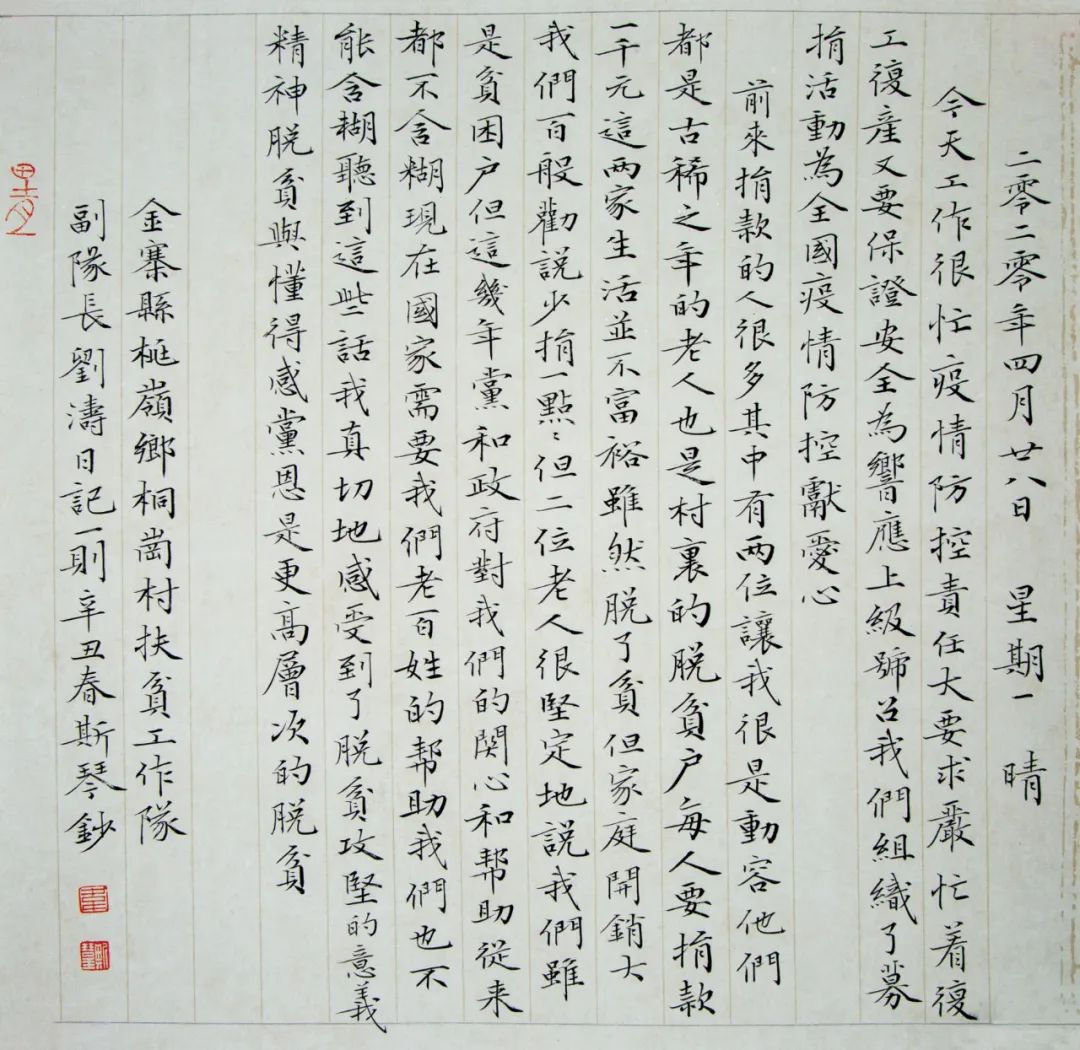 二零二零年四月廿八日 星期一 晴
今天工作很忙疫情防控責任大要求嚴忙着復
工復産又要保證安全為響應上級號召我們組織了募
捐活動為全國疫情防控獻愛心
前來捐款的人很多其中有两位讓我很是動容他們
都是古稀之年的老人也是村裏的脱貧户每人要捐款
一千元這两家生活並不富裕雖然脱了貧但家庭開銷大
我們百般勸説少捐一點々但二位老人很堅定地説我們雖
是貧困户但這幾年黨和政府對我們的関心和帮助從来
都不含糊現在國家需要我們老百姓的帮助我們也不
能含糊聽到這些話我真切地感受到了脱貧攻堅的意義
精神脱貧與懂得感黨恩是更高層次的脱貧
金寨縣桃嶺鄉桐崗村扶貧工作隊
副隊長劉濤日記一則辛丑春斯琴鈔